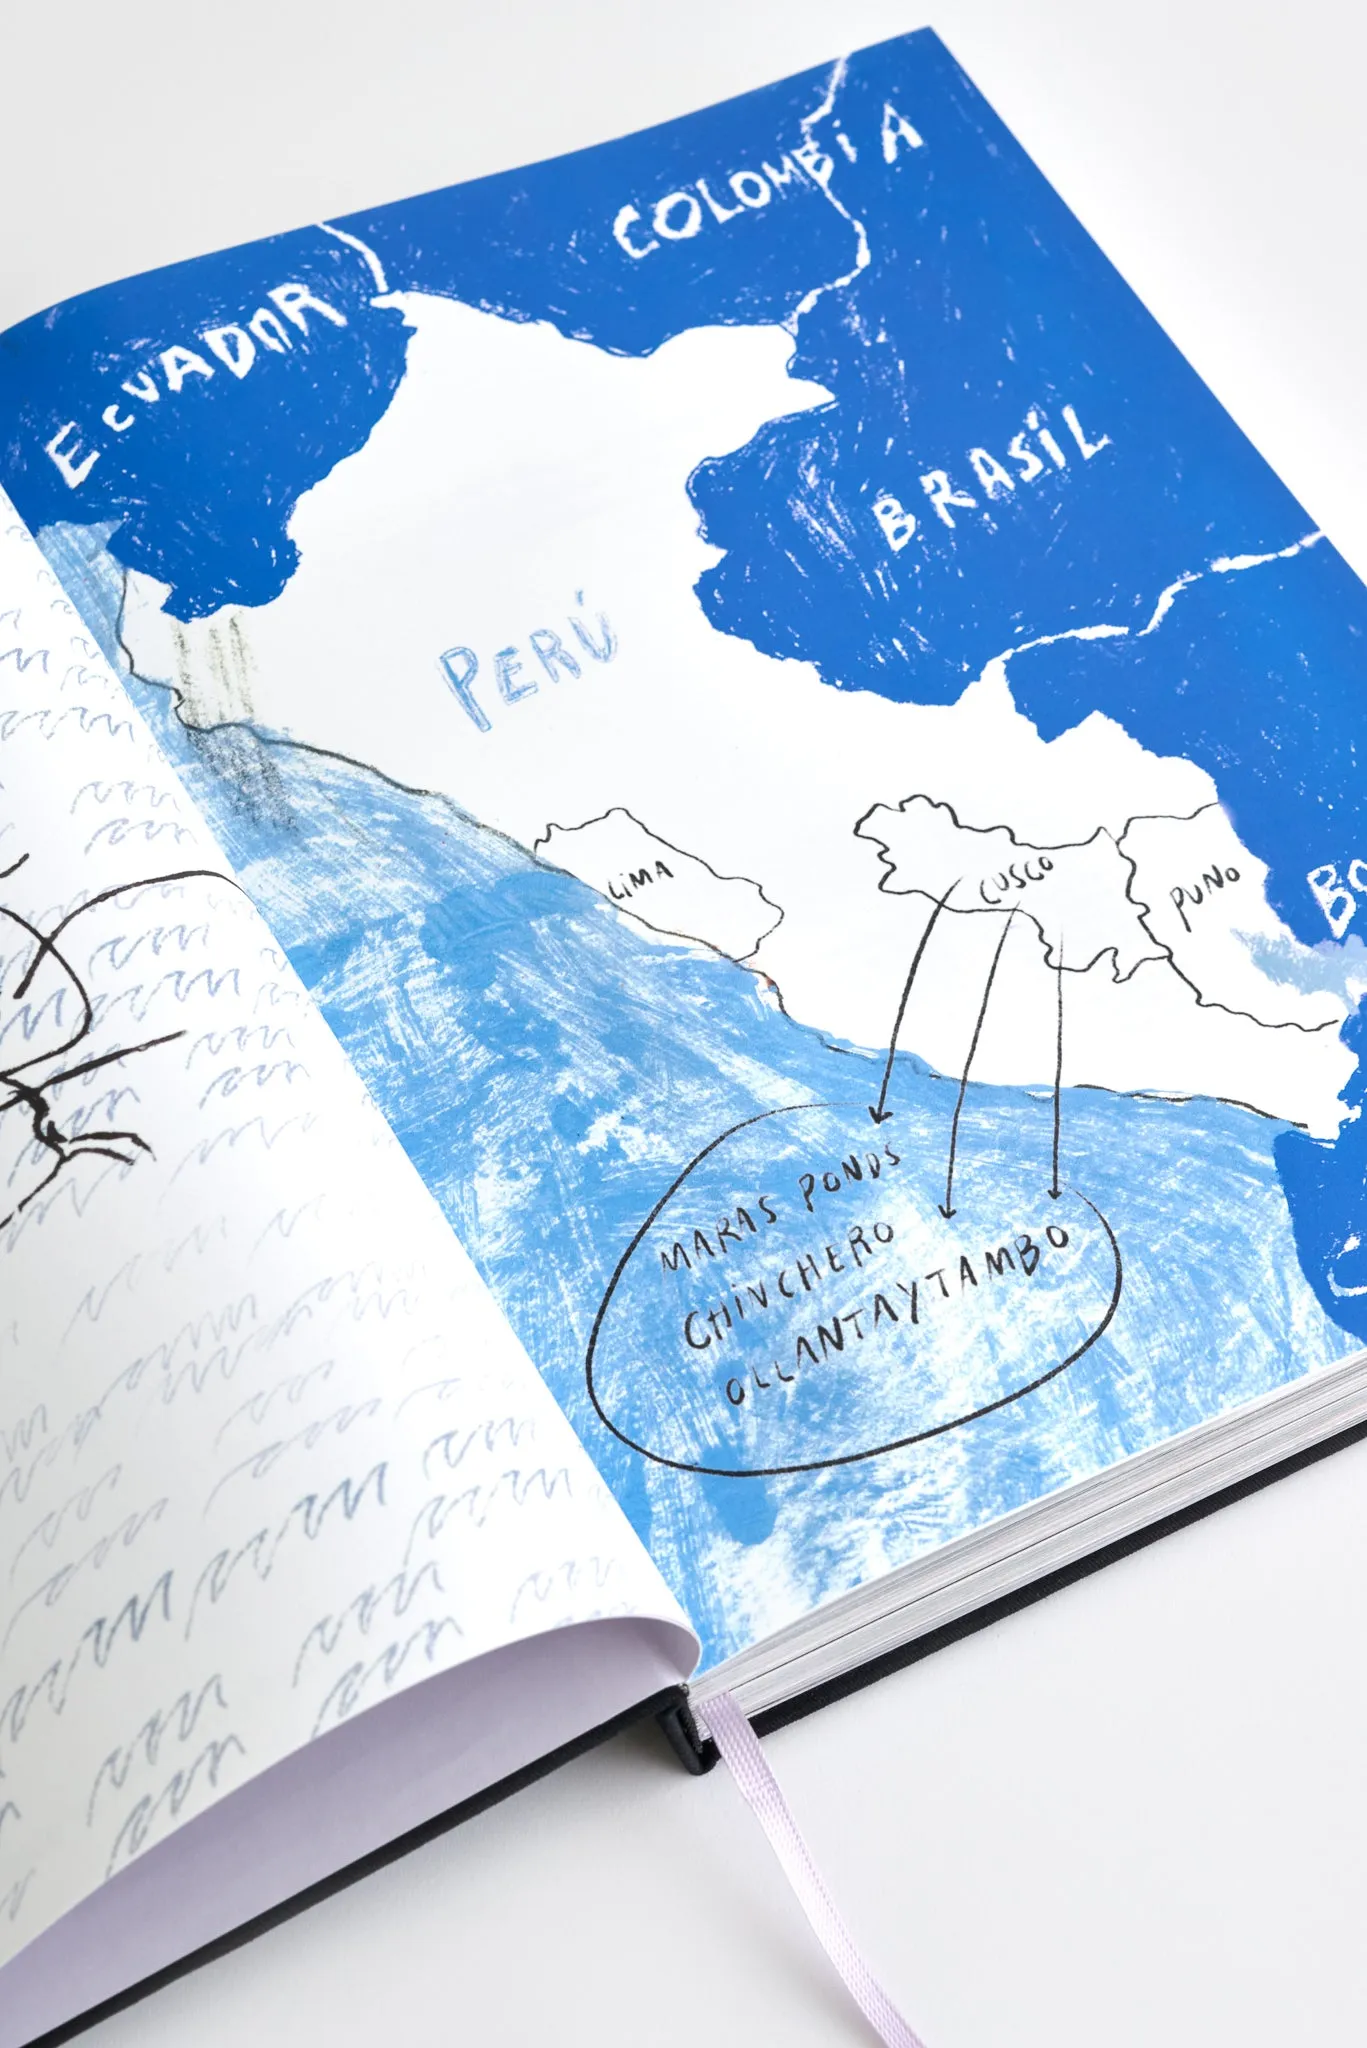 COLOMBiA
ECUADOR
BRASiL
PERÚ
LiMA
CUSCO
PUNO
BO
MARAS PONDS
CHiNCHERO
OLLANTAYTAMBO